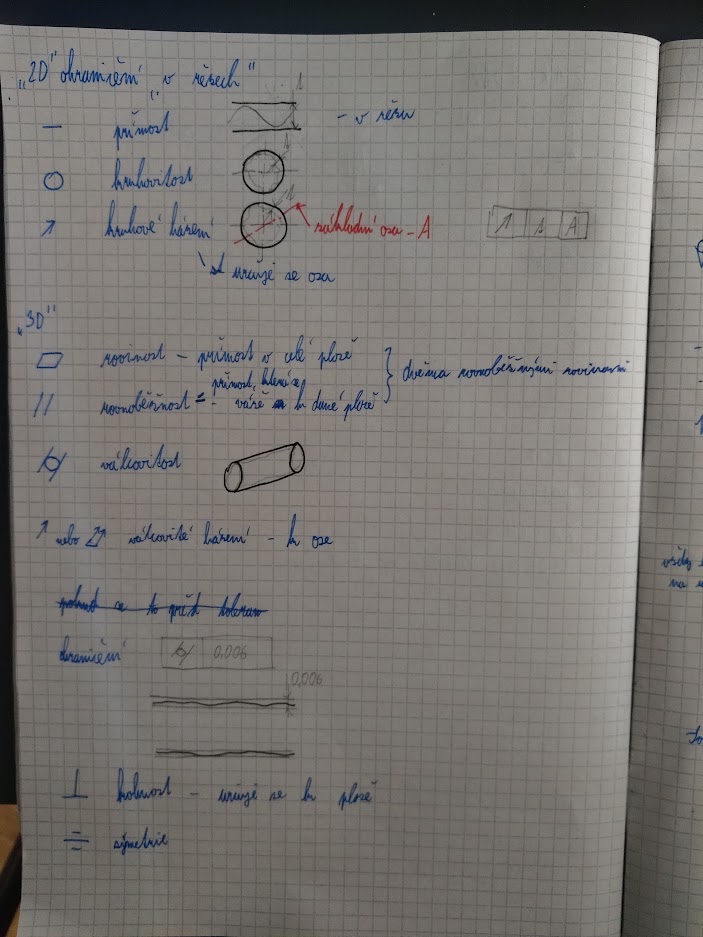 „2D" ohraničení „v řezech"
— přímost – v řezu
○ kruhovitost
↗ kruhové házení základní osa – A ↗ A
určuje se osa
„3D"
▱ rovinost – přímost v celé ploše
// rovnoběžnost – přímost, která se váže k dané ploše } dvěma rovnoběžnými rovinami
⌭ válcovitost
↗ nebo ⌰ válcovité házení – k ose
ohraničení ⌭ 0,006
0,006
⊥ kolmost – určuje se k ploše
⌯ symetrie